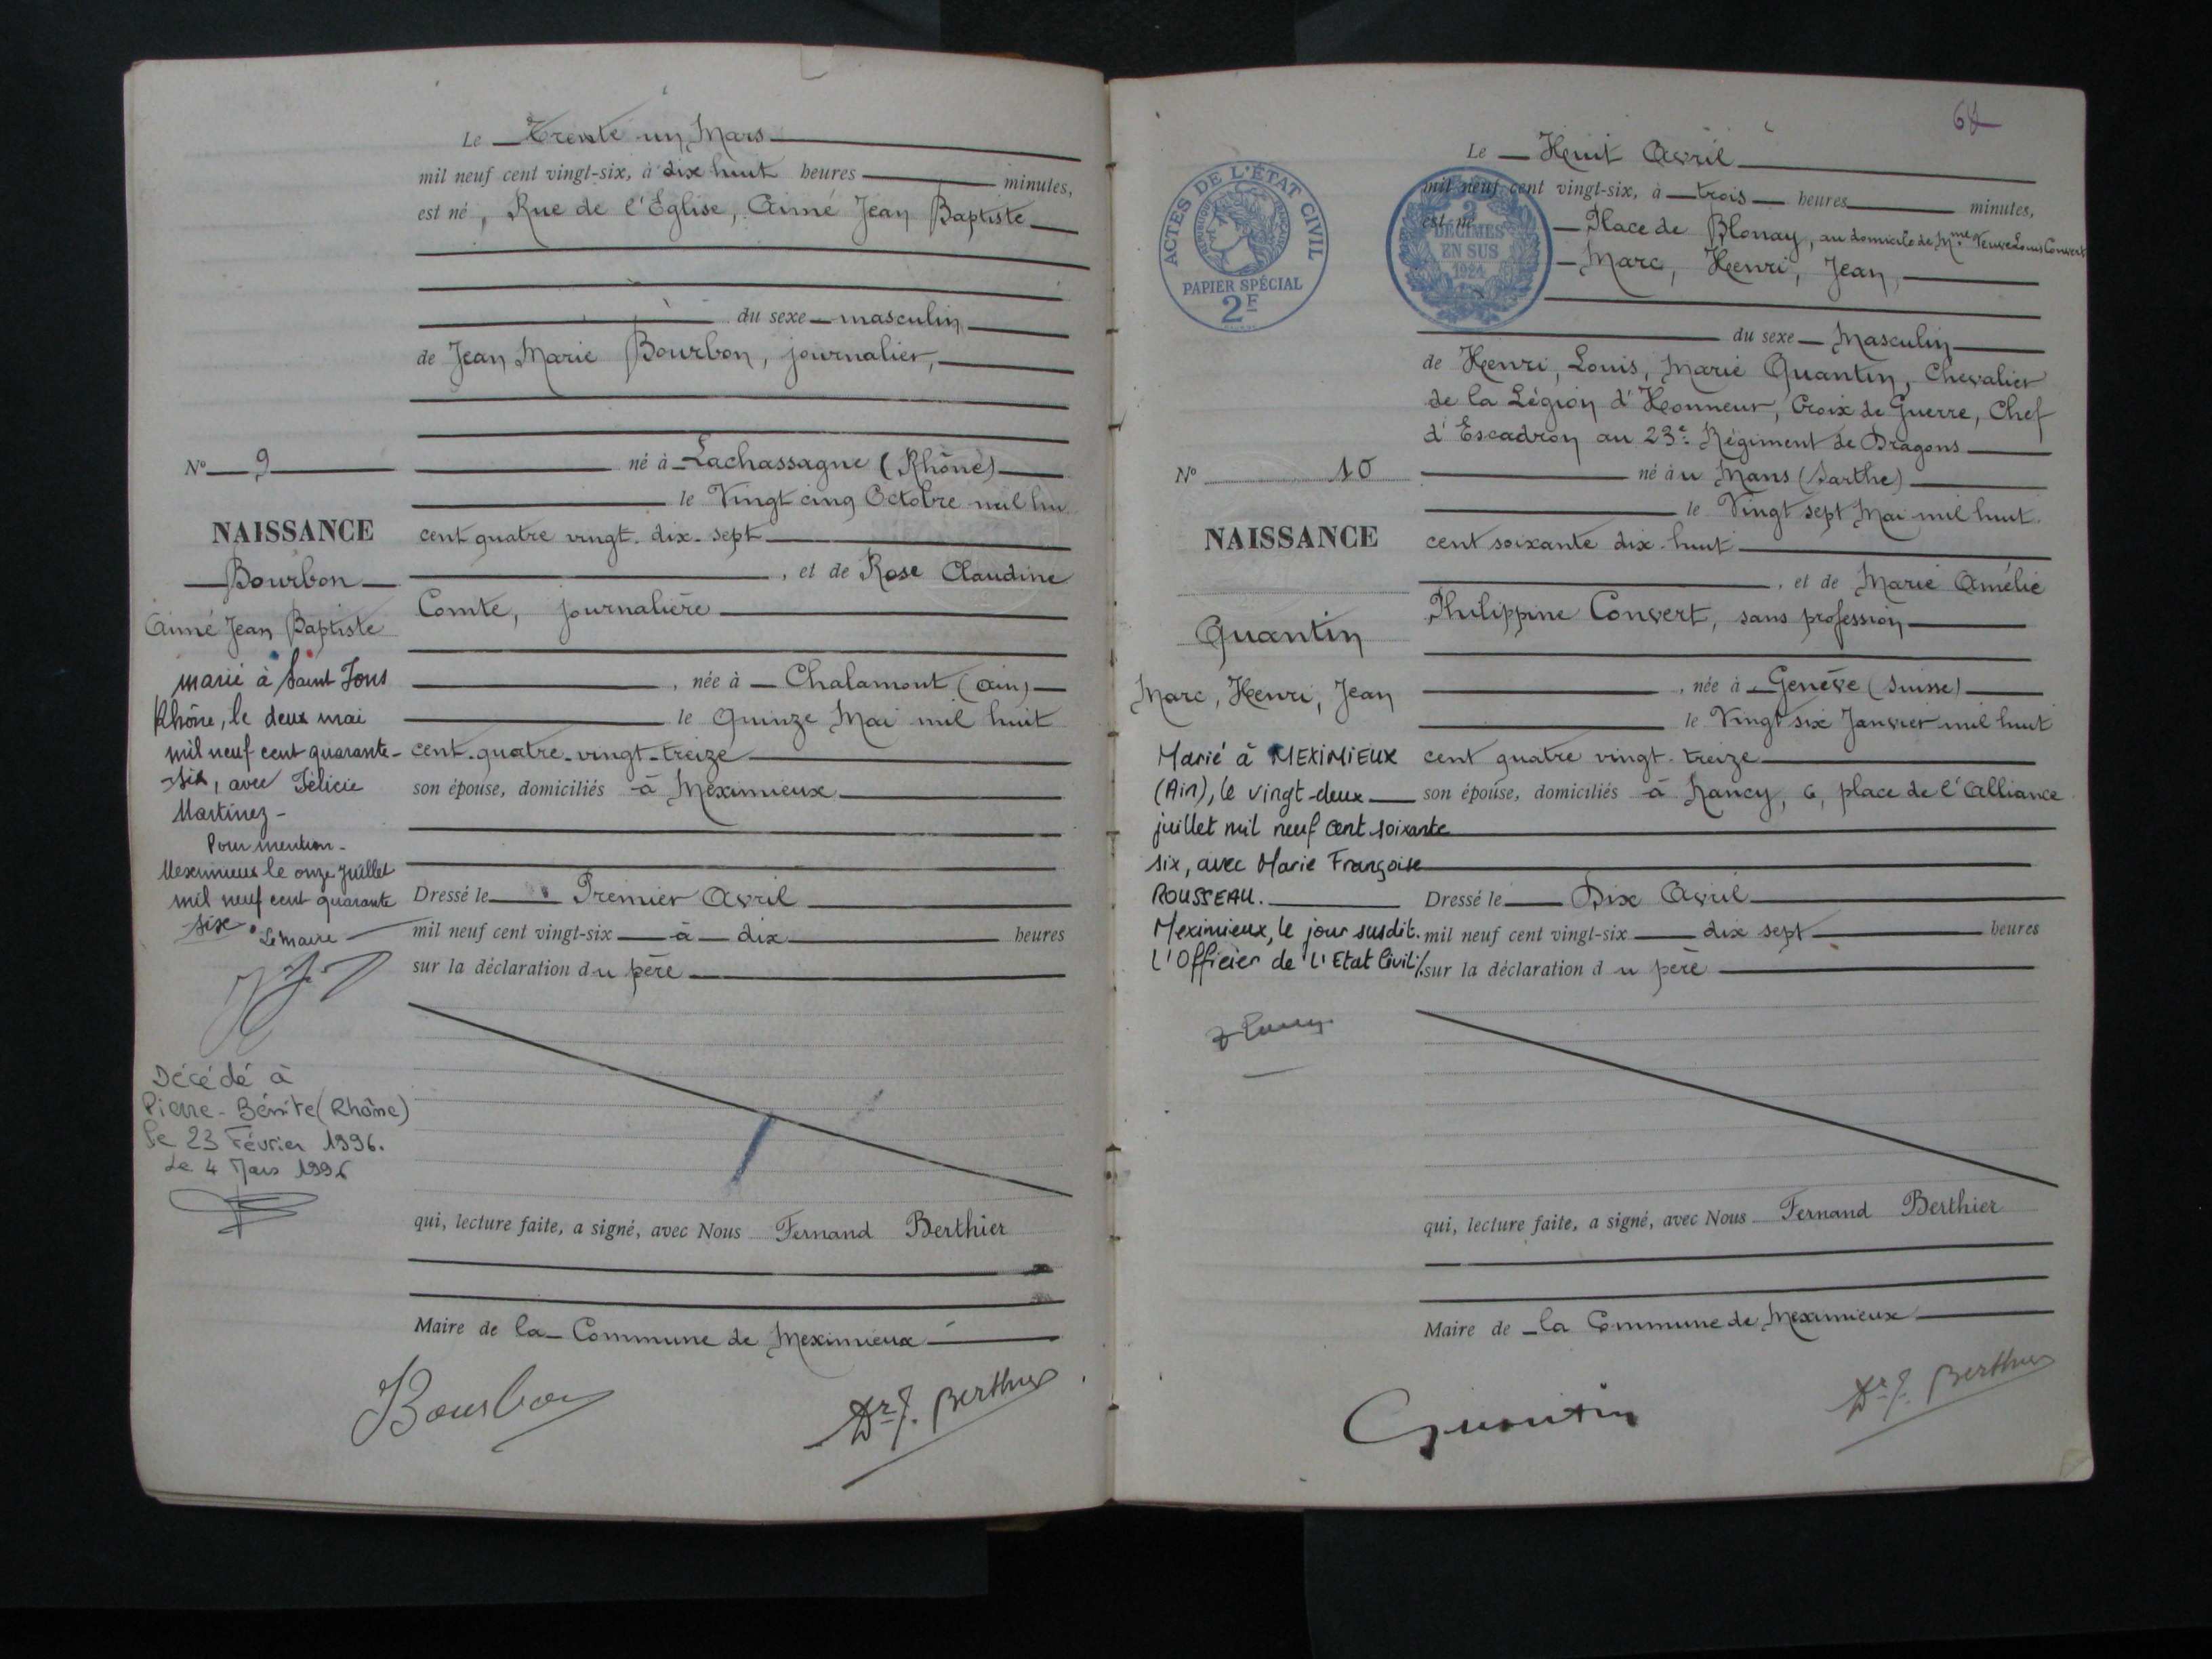 Le Trente un Mars
mil neuf cent vingt-six, à dix huit heures minutes,
est né, Rue de l'Église, Aimé Jean Baptiste
du sexe masculin
de Jean Marie Bourbon, journalier,
né à Lachassagne (Rhône)
le Vingt cinq Octobre mil hu
cent quatre vingt. dix. sept
, et de Rose Claudine
Comte, journalière
, née à Chalamont (Ain)
le Quinze Mai mil huit
cent. quatre. vingt. treize
son épouse, domiciliés à Meximieux
Dressé le Premier Avril
mil neuf cent vingt-six à dix heures
sur la déclaration du père
qui, lecture faite, a signé, avec Nous Fernand Berthier
Maire de la Commune de Meximieux
Bourbon
Dr F. Berthier
N° 9
NAISSANCE
Bourbon
Aimé Jean Baptiste
marié à Saint Fons
Rhône, le deux mai
mil neuf cent quarante-
-six, avec Félicie
Martinez -
Pour mention -
Meximieux le onze Juillet
mil neuf cent quarante
six.
Le maire
Décédé à
Pierre-Bénite (Rhône)
le 23 Février 1996.
Le 4 Mars 1996
68
ACTES DE L'ÉTAT CIVIL
PAPIER SPÉCIAL
2F
2
DÉCIMES
EN SUS
1924
Le Huit Avril
mil neuf cent vingt-six, à trois heures minutes,
est né Place de Blonay, au domicile de Mme Veuve Louis Convert
Marc, Henri, Jean,
du sexe Masculin
de Henri, Louis, Marie Quantin, Chevalier
de la Légion d'Honneur, Croix de Guerre, Chef
d'Escadron au 23e Régiment de Dragons
né au Mans (Sarthe)
le Vingt sept Mai mil huit
cent soixante dix. huit
, et de Marie Amélie
Philippine Convert, sans profession
, née à Genève (Suisse)
le Vingt six Janvier mil huit
cent quatre vingt. treize
son épouse, domiciliés à Nancy, 6, place de l'Alliance
Dressé le Dix Avril
mil neuf cent vingt-six dix sept heures
sur la déclaration du père
qui, lecture faite, a signé, avec Nous Fernand Berthier
Maire de la Commune de Meximieux
Quantin
Dr F. Berthier
N° 10
NAISSANCE
Quantin
Marc, Henri, Jean
Marié à MEXIMIEUX
(Ain), le vingt-deux
juillet mil neuf cent soixante
six, avec Marie Françoise
ROUSSEAU.
Meximieux, le jour susdit.
L'Officier de l'Etat Civil